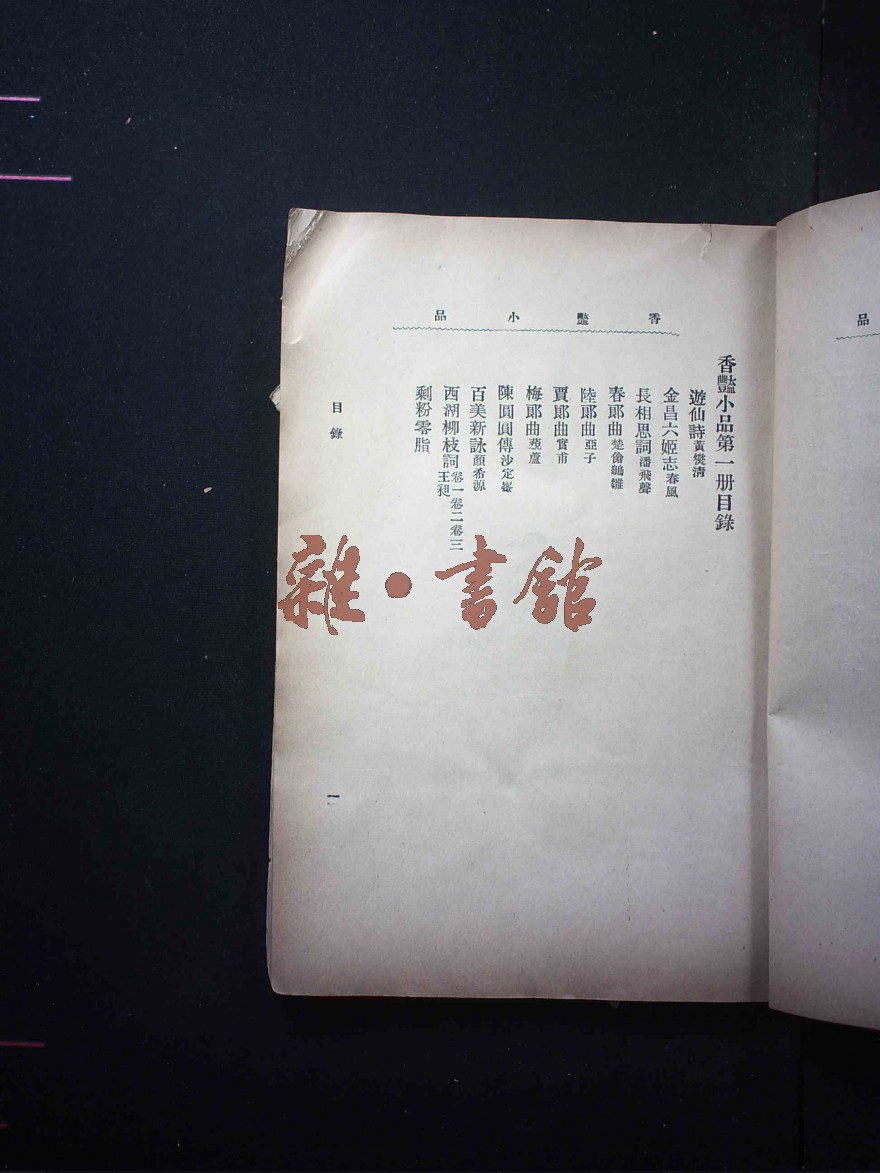 香豔小品
香豔小品第一册目錄
遊仙詩 黃燮清
金昌六姬志 春風
長相思詞 潘飛聲
春郎曲 楚傖 鵷雛
陸郎曲 亞子
賈郎曲 實甫
梅郎曲 葱蘆
陳圓圓傳 沙定峯
百美新詠 顏希源
西湖柳枝詞 卷一卷二卷三 王昶
剩粉零脂
目錄
一
品
雜·書館